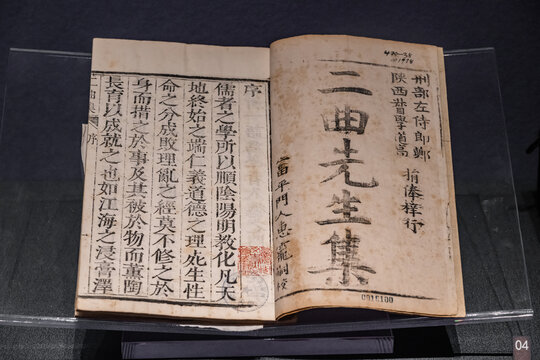 刑部左侍郎鄭
陝西督學道高
捐俸梓行
二曲先生集
平門人惠
序
儒者之學所以順陰陽明教化凡天
地終始之端仁義道德之理死生性
命之分成敗理亂之經莫不修之於
身而措之於事及其被於物而薰陶
長育以成就之也如江海之浸膏澤
二曲集 序
04